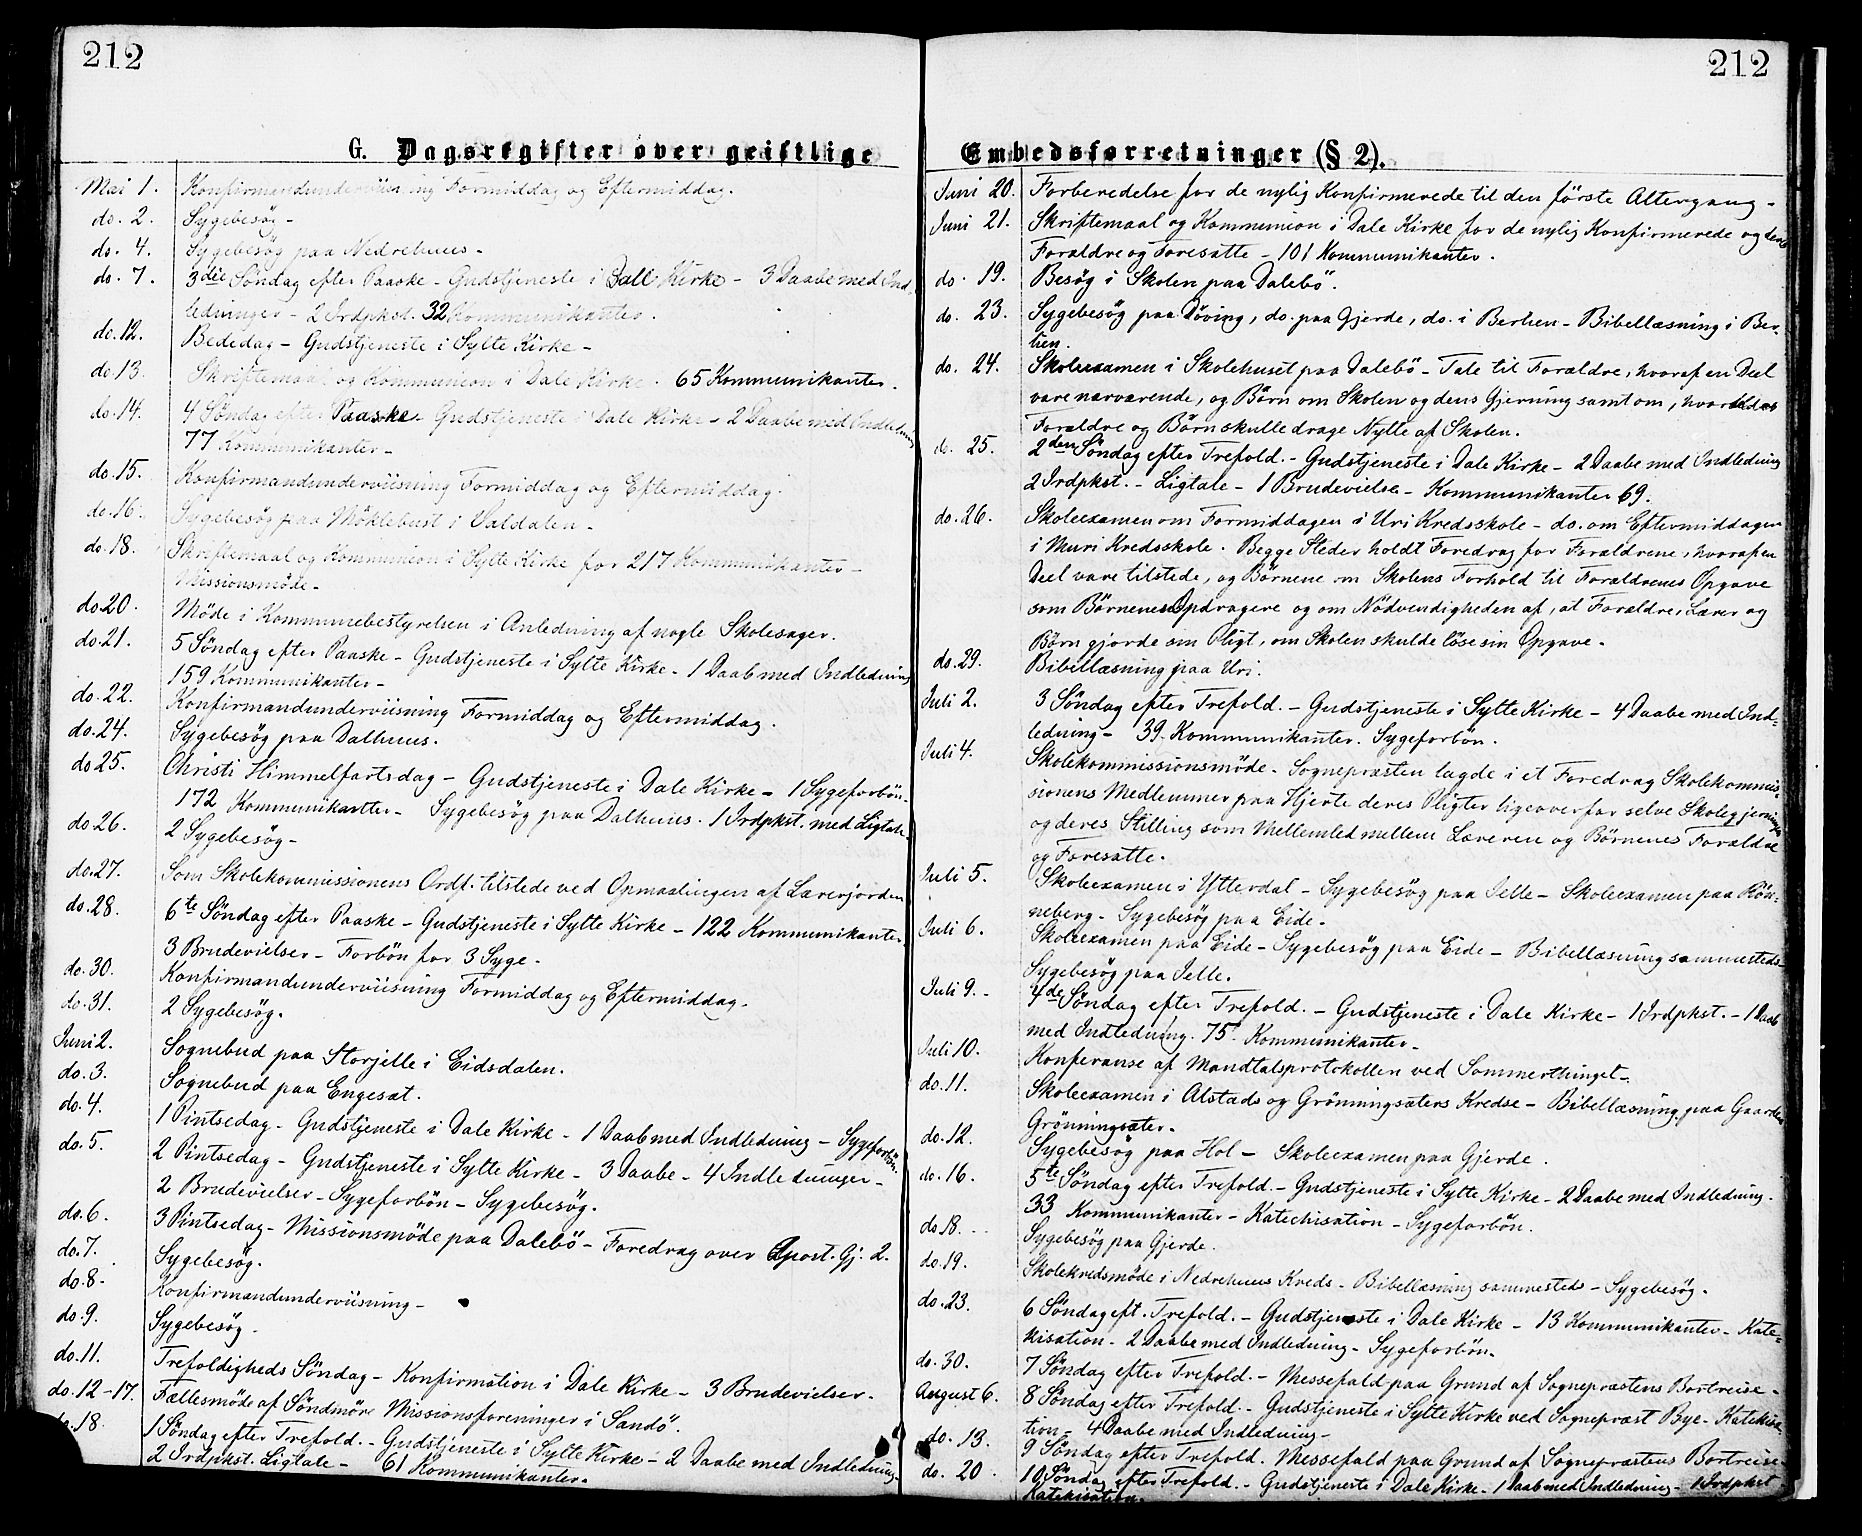 212
G. Dagsregister over geistlige
Mai 1. Konfirmandunderviisning Formiddag og Eftermiddag.
do. 2. Sygebesøg -
do. 4. Sygebesøg paa Nedrehuus -
do. 7. 3die Søndag efter Paaske - Gudstjeneste i Dale Kirke - 3 Daabe med Ind-
ledninger - 2 Jrdpkst. 32 Kommunikanter.
do. 12. Bededag - Gudstjeneste i Sylte Kirke -
do. 13. Skriftemaal og Kommunion i Dale Kirke. 65 Kommunikanter.
do. 14. 4 Søndag efter Paaske - Gudstjeneste i Dale Kirke - 2 Daabe med Indledning
77 Kommunikanter -
do. 15. Konfirmandunderviisning Formiddag og Eftermiddag.
do. 16. Sygebesøg paa Møklebust i Valdalen -
do. 18. Skriftemaal og Kommunion i Sylte Kirke for 217 Kommunikanter -
Missionsmøde -
do. 20. Møde i Kommunebestyrelsen i Anledning af nogle Skolesager.
do. 21. 5 Søndag efter Paaske - Gudstjeneste i Sylte Kirke - 1 Daab med Indledning
159 Kommunikanter -
do. 22. Konfirmandunderviisning Formiddag og Eftermiddag.
do. 24. Sygebesøg paa Dalhuus.
do 25. Christi Himmelfartsdag - Gudstjeneste i Dale Kirke - 1 Sygeforbøn -
172 Kommunikanter - Sygebesøg paa Dalhuus. 1 Jrdpkst. med Ligtale
do 26. 2 Sygebesøg -
do. 27. Som Skolekommissionens Ordf. tilstede ved Opmaalingen af Lærerjorden
do. 28. 6te Søndag efter Paaske - Gudstjeneste i Sylte Kirke - 122 Kommunikanter
3 Brudevielser - Forbøn for 3 Syge -
do. 30. Konfirmandunderviisning Formiddag og Eftermiddag.
do. 31. 2 Sygebesøg.
Juni 2. Sognebud paa Storjelle i Eidsdalen.
do. 3. Sognebud paa Engesæt.
do. 4. 1 Pintsedag - Gudstjeneste i Dale Kirke - 1 Daab med Indledning - Sygeforbøn.
do. 5. 2 Pintsedag - Gudstjeneste i Sylte Kirke - 3 Daabe - 4 Indledninger -
2 Brudevielser - Sygeforbøn - Sygebesøg.
do. 6. 3 Pintsedag - Missionsmøde paa Dalebø - Foredrag over Apost. Gj. 2.
do. 7. Sygebesøg.
do. 8 - Konfirmandunderviisning -
do. 9. Sygebesøg.
do. 11. Trefoldigheds Søndag - Konfirmation i Dale Kirke - 3 Brudevielser.
do. 12-17. Fællesmøde af Søndmøre Missionsforeninger i Sandø.
do. 18. 1 Søndag efter Trefold. - Gudstjeneste i Sylte Kirke - 2 Daabe med Indledning
2 Jrdpkst. Ligtale - 61 Kommunikanter.
212
Embedsforretninger (§ 2).
Juni 20. Forberedelse for de nylig Konfirmerede til den første Altergang -
Juni 21. Skriftemaal og Kommunion i Dale Kirke for de nylig Konfirmerede og deres
Forældre og Foresatte - 101 Kommunikanter.
do. 19. Besøg i Skolen paa Dalebø.
do. 23. Sygebesøg paa Døving, do. paa Gjerde, do. i Berlien - Bibellæsning i Ber-
lien.
do. 24. Skoleexamen i Skolehuset paa Dalebø - Tale til Forældre, hvoraf en Deel
vare nærværende, og Børn om Skolen og dens Gjerning samt om, hvorledes
Forældre og Børn skulle drage Nytte af Skolen.
do. 25. 2den Søndag efter Trefold. - Gudstjeneste i Dale Kirke - 2 Daabe med Indledning
2 Jrdpkst. - Ligtale - 1 Brudevielse - Kommunikanter 69.
do. 26. Skoleexamen om Formiddagen i Uri Kredsskole - do. om Eftermiddagen
i Muri Kredsskole. Begge Steder holdt Foredrag for Forældrene, hvoraf en
Deel vare tilstede, og Børnene om Skolens Forhold til Forældrenes Opgave
som Børnenes Opdragere og om Nødvendigheden af, at Forældre, Lærer og
Børn gjorde sin Pligt, om Skolen skulde løse sin Opgave -
do. 29. Bibellæsning paa Uri.
Juli 2. 3 Søndag efter Trefold. - Gudstjeneste i Sylte Kirke - 4 Daabe med Ind-
ledning - 39. Kommunikanter. Sygeforbøn.
Juli 4. Skolekommissionsmøde. Sognepræsten lagde i et Foredrag Skolekommis-
sionens Medlemmer paa Hjerte deres Pligter ligeoverfor selve Skolegjerningen
og deres Stilling som Mellemled mellem Læreren og Børnenes Forældre
og Foresatte.
Juli 5. Skoleexamen i Ytterdal - Sygebesøg paa Jelle - Skoleexamen paa Røn-
neberg - Sygebesøg paa Eide -
Juli 6. Skoleexamen paa Eide - Sygebesøg paa Eide - Bibellæsning sammesteds -
Sygebesøg paa Jelle.
Juli 9. - 4de Søndag efter Trefold. - Gudstjeneste i Dale Kirke - 1 Jrdpkst. - 1 Daab
med Indledning. 75 Kommunikanter -
Juli 10. Konferanse af Mandtalsprotokollen ved Sommerthinget -
do. 11. Skoleexamen i Alstads og Grønningsæters Kredse - Bibellæsning paa Gaarden
Grønningsæter.
do. 12. Sygebesøg paa Hol - Skoleexamen paa Gjerde.
do. 16. 5te Søndag efter Trefold. - Gudstjeneste i Sylte Kirke - 2 Daabe med Indledning.
33 Kommunikanter - Katechisation - Sygeforbøn.
do 18. - Sygebesøg paa Gjerde.
do. 19. Skolekredsmøde i Nedrehuus Kreds - Bibellæsning sammesteds - Sygebesøg.
do. 23. 6 Søndag eft. Trefold. - Gudstjeneste i Dale Kirke - 13 Kommunikanter - Kate-
kisation - 2 Daabe med Indledning - Sygeforbøn.
do. 30. 7 Søndag efter Trefold. - Messefald paa Grund af Sognepræstens Bortreise -
August 6. 8 Søndag efter Trefold. - Gudstjeneste i Sylte Kirke ved Sognepræst Bye - Katekisa-
tion - 4 Daabe med Indledning -
do. 13. 9 Søndag efter Trefold. Messefald paa Grund af Sognepræstens Bortreise
do. 20. 10 Søndag efter Trefold. - Gudstjeneste i Dale Kirke - 1 Daab med Indledning - 1 Jrdpkst
Katekisation.